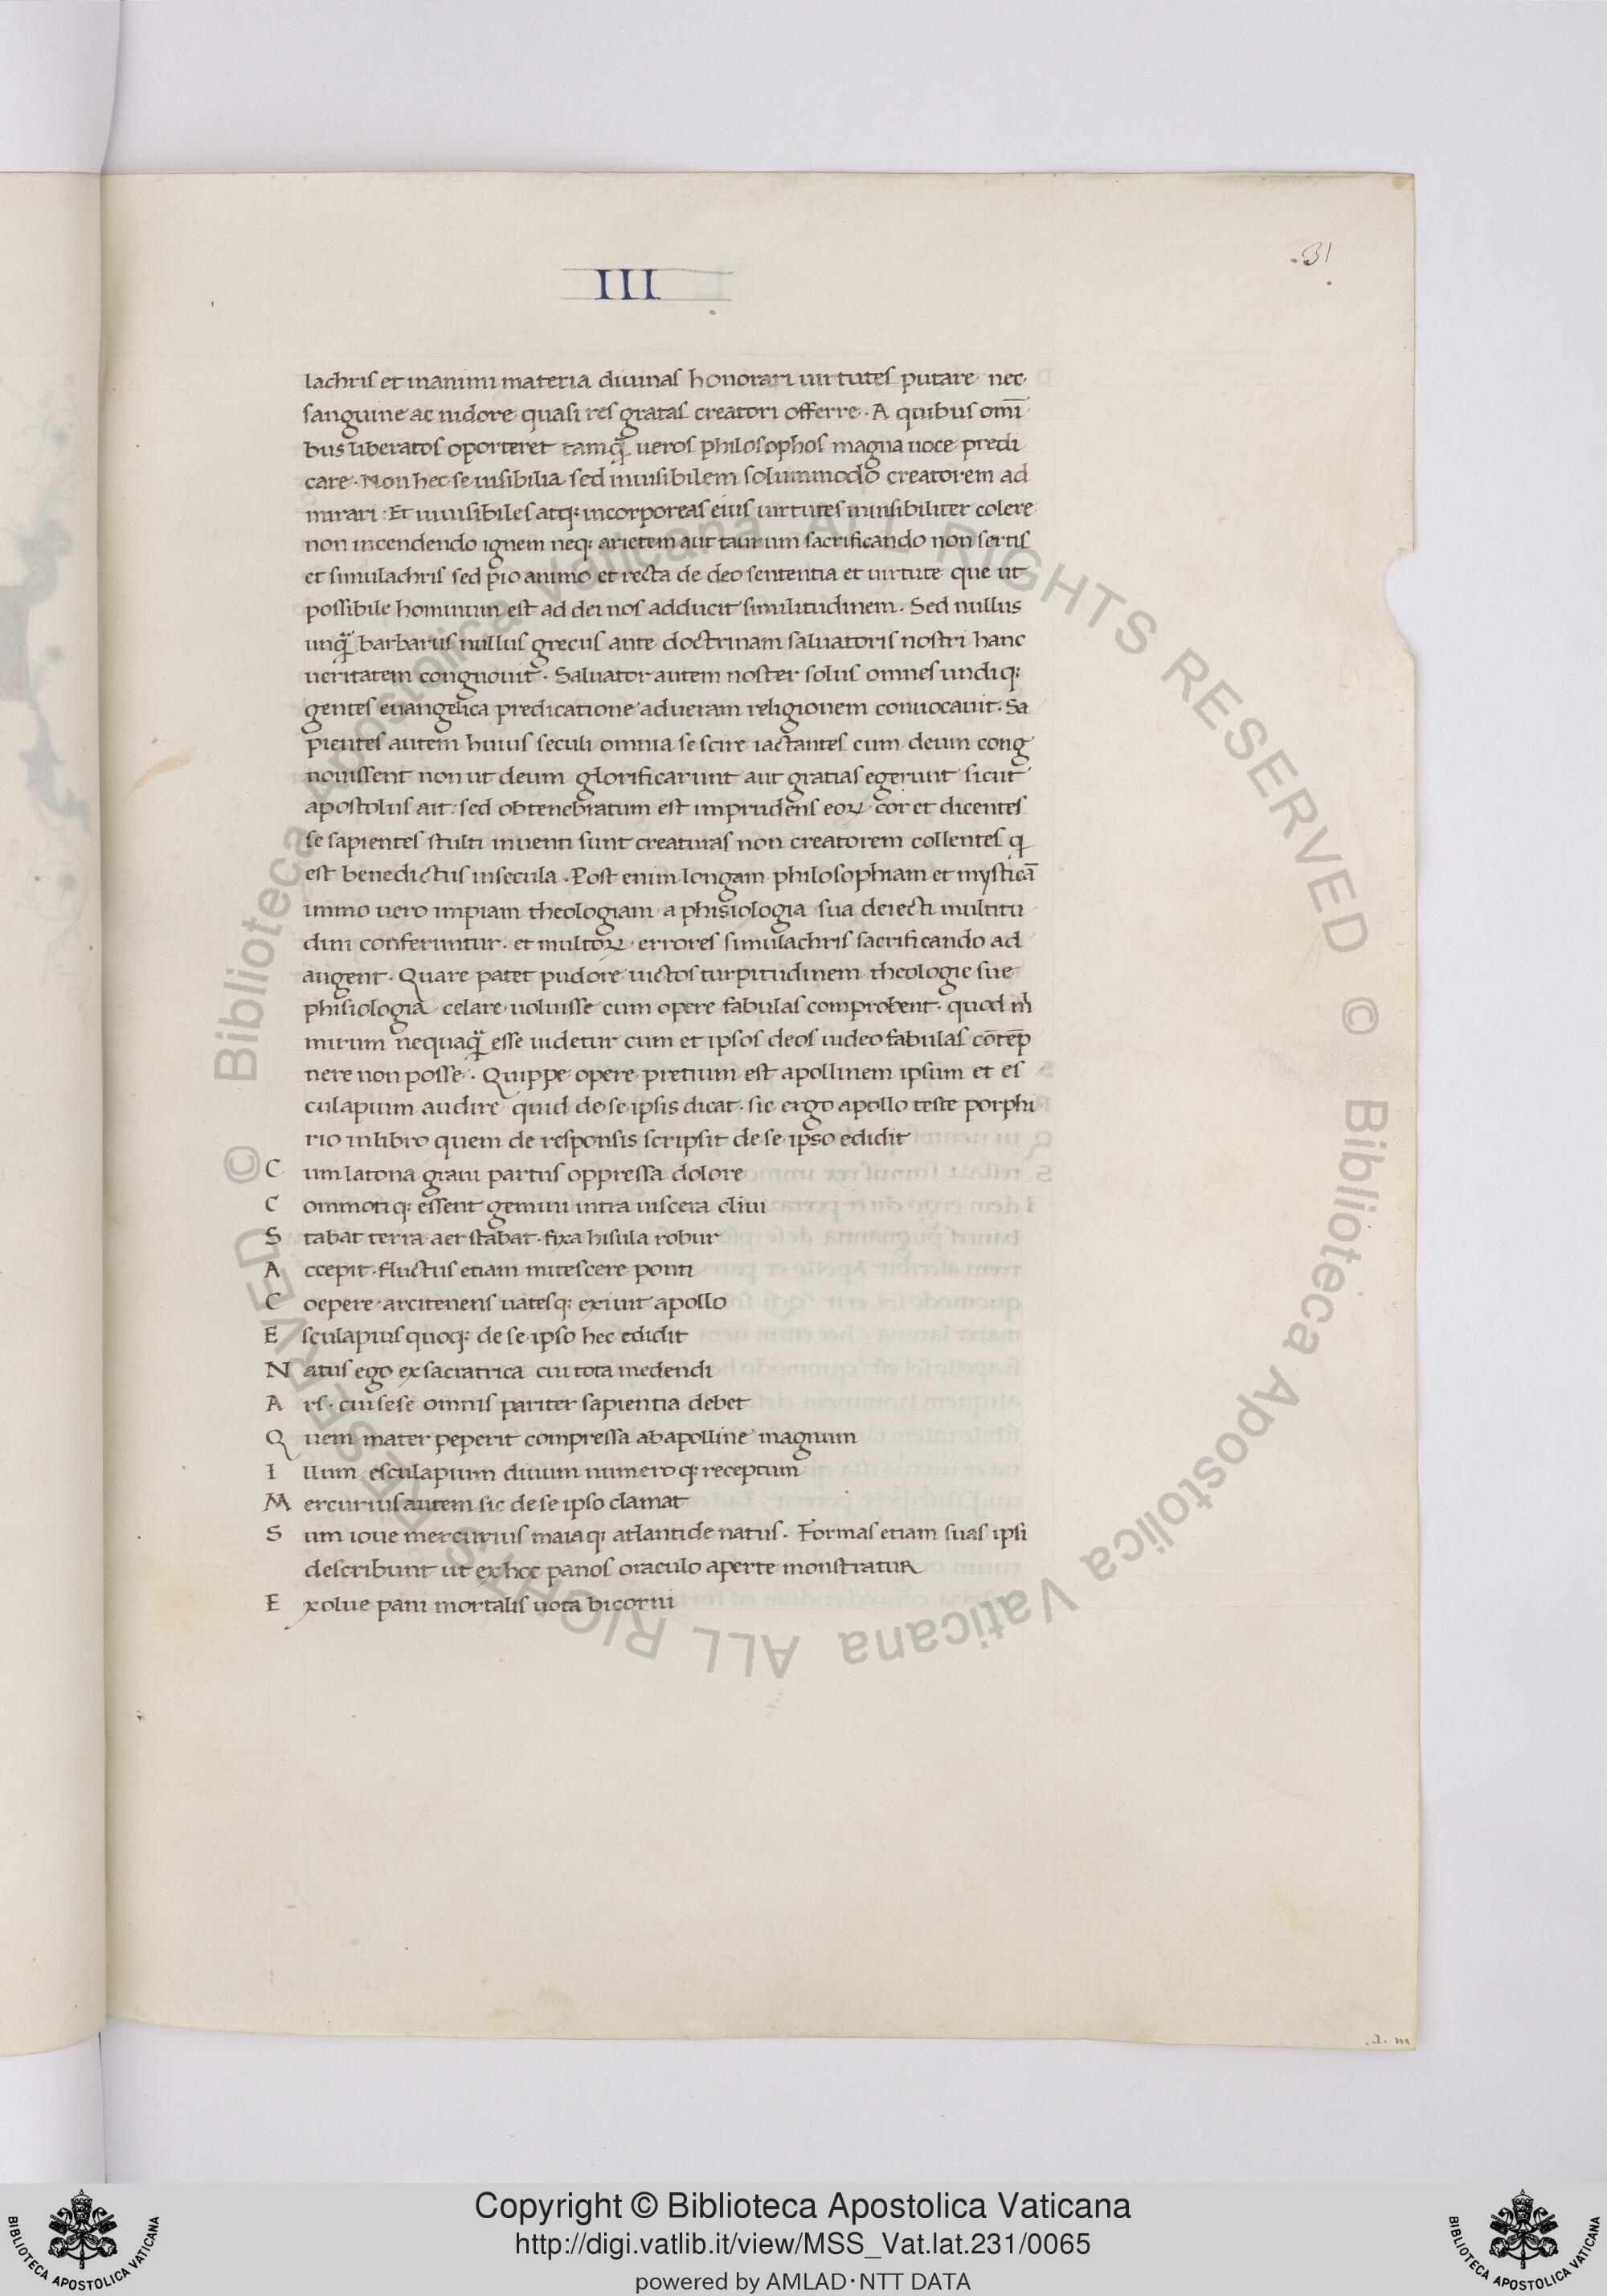 III
.31
lachris et inanimi materia diuinas honorari uirtutes putare nec
sanguine ac nidore quasi res gratas creatori offerre. A quibus omī
bus liberatos oporteret tamq̃ ueros philosophos magna uoce predi
care. Non hec se uisibilia sed inuisibilem solummodo creatorem ad
mirari: Et inuisibiles atq; incorporeas eius uirtutes inuisibiliter colere
non incendendo ignem neq; arietem aut taurum sacrificando non sertis
et simulachris sed pio animo et recta de deo sententia et uirtute que ut
possibile hominum est ad dei nos adducit similitudinem. Sed nullus
unq̃ barbarus nullus grecus ante doctrinam saluatoris nostri hanc
ueritatem congnouit. Saluator autem noster solus omnes undiq;
gentes euangelica predicatione ad ueram religionem conuocauit. Sa
pientes autem huius seculi omnia se scire iactantes cum deum cong
nouissent non ut deum glorificarunt aut gratias egerunt sicut
apostolus ait: sed obtenebratum est imprudens eoꝝ cor et dicentes
se sapientes stulti inuenti sunt creaturas non creatorem collentes q
est benedictus in secula. Post enim longam philosophiam et mysticā
immo uero impiam theologiam a phisiologia sua deiecti multitu
dini conferuntur. et multoꝝ errores simulachris sacrificando ad
augent. Quare patet pudore uictos turpitudinem theologie sue
phisiologia celare uoluisse cum opere fabulas comprobent. quod
mirum nequaq̃ esse uidetur cum et ipsos deos uideo fabulas cōtēp
nere non posse. Quippe opere pretium est apollinem ipsum et es
culapium audire quid de se ipsis dicat. sic ergo apollo teste porphi
rio in libro quem de responsis scripsit de se ipso edidit
C um latona graui partus oppressa dolore
C ommotiq; essent gemini intra uiscera cliui
S tabat terra aer stabat. fixa hisula robur
A ccepit. fluctus etiam mitescere ponti
C oepere arcitenens uatesq; exiuit apollo
E sculapius quoq; de se ipso hec edidit
N atus ego ex sacra trica cui tota medendi
A rs. cui sese omnis pariter sapientia debet
Q uem mater peperit compressa ab apolline magnum
I llum esculapium diuum numeroq; receptum
M ercurius autem sic de se ipso clamat
S um ioue mercurius maiaq; atlantide natus. Formas etiam suas ipsi
describunt ut ex hoc panos oraculo aperte monstratur
E xolue pani mortalis uota bicorni
Copyright © Biblioteca Apostolica Vaticana
http://digi.vatlib.it/view/MSS_Vat.lat.231/0065
powered by AMLAD·NTT DATA
BIBLIOTECA APOSTOLICA VATICANA
BIBLIOTECA APOSTOLICA VATICANA
© Biblioteca Apostolica Vaticana ALL RIGHTS RESERVED © Biblioteca Apostolica Vaticana ALL RIGHTS RESERVED